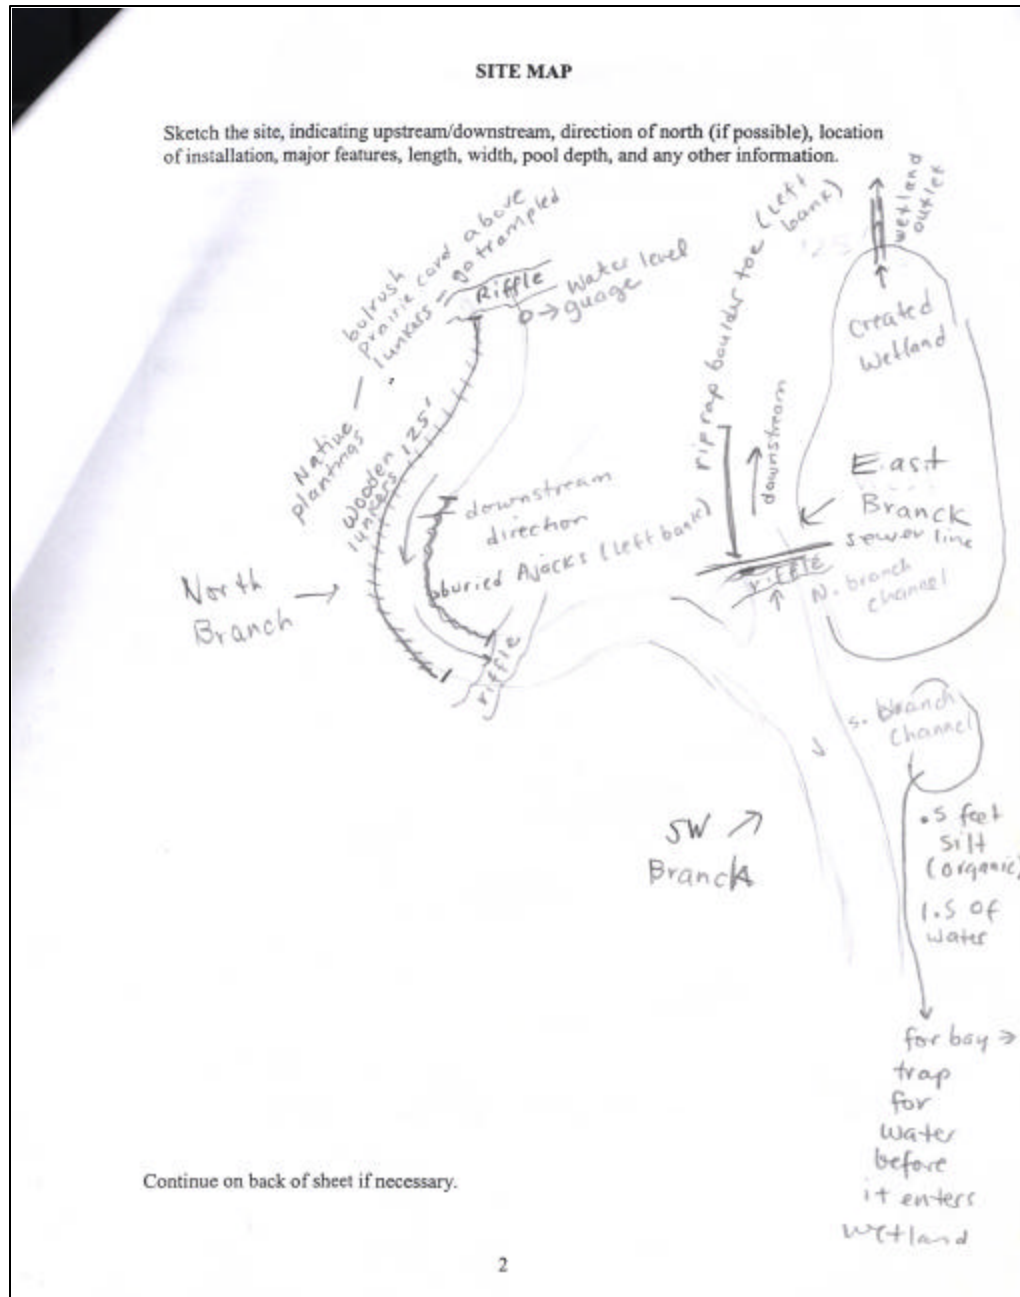 SITE MAP
Sketch the site, indicating upstream/downstream, direction of north (if possible), location
of installation, major features, length, width, pool depth, and any other information.
bulrush
prairie cord above
lunkers = go trampled
Native —
plantings
Wooden 125'
lunkers
Riffle
Water level
guage
downstream
direction
buried Ajacks (left bank)
North
Branch
riffle
rip rap boulder toe (left
bank)
downstream
wetland
outlet
created
wetland
East
Branck
sewer line
riffle
N. branch
channel
s. branch
channel
SW
Branck
.5 feet
silt
(organic)
1.5 of
water
for bay →
trap
for
water
before
it enters
wetland
Continue on back of sheet if necessary.
2